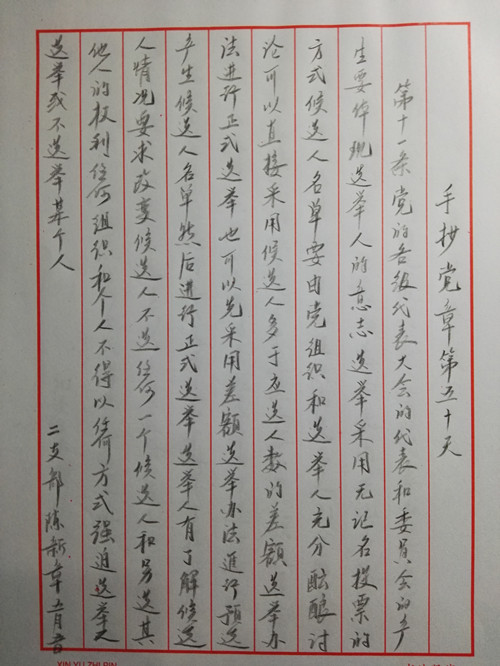 手抄党章第五十天
第十一条党的各级代表大会的代表和委员会的产
生要体现选举人的意志选举采用无记名投票的
方式候选人名单要由党组织和选举人充分酝酿讨
论可以直接采用候选人多于应选人数的差额选举办
法进行正式选举也可以先采用差额选举办法进行预选
产生候选人名单然后进行正式选举选举人有了解候选
人情况要求改变候选人不选任何一个候选人和另选其
他人的权利任何组织和个人不得以任何方式强迫选举人
选举或不选举某个人
二支部陈新章五月
XIN YU ZHI PIN